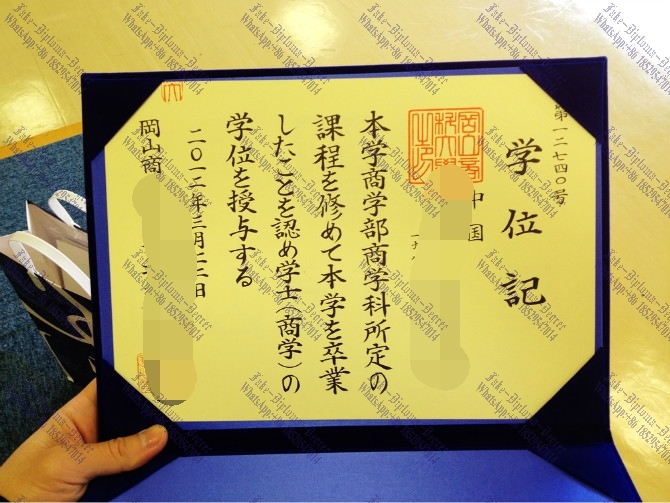 第一二七四〇号
学位記
中国
本学商学部商学科所定の
課程を修めて本学を卒業
したことを認め学士(商学)の
学位を授与する
二〇一二年三月二二日
岡山商
Fake-Diploma-Degree
WhatsApp:+86 18529547014